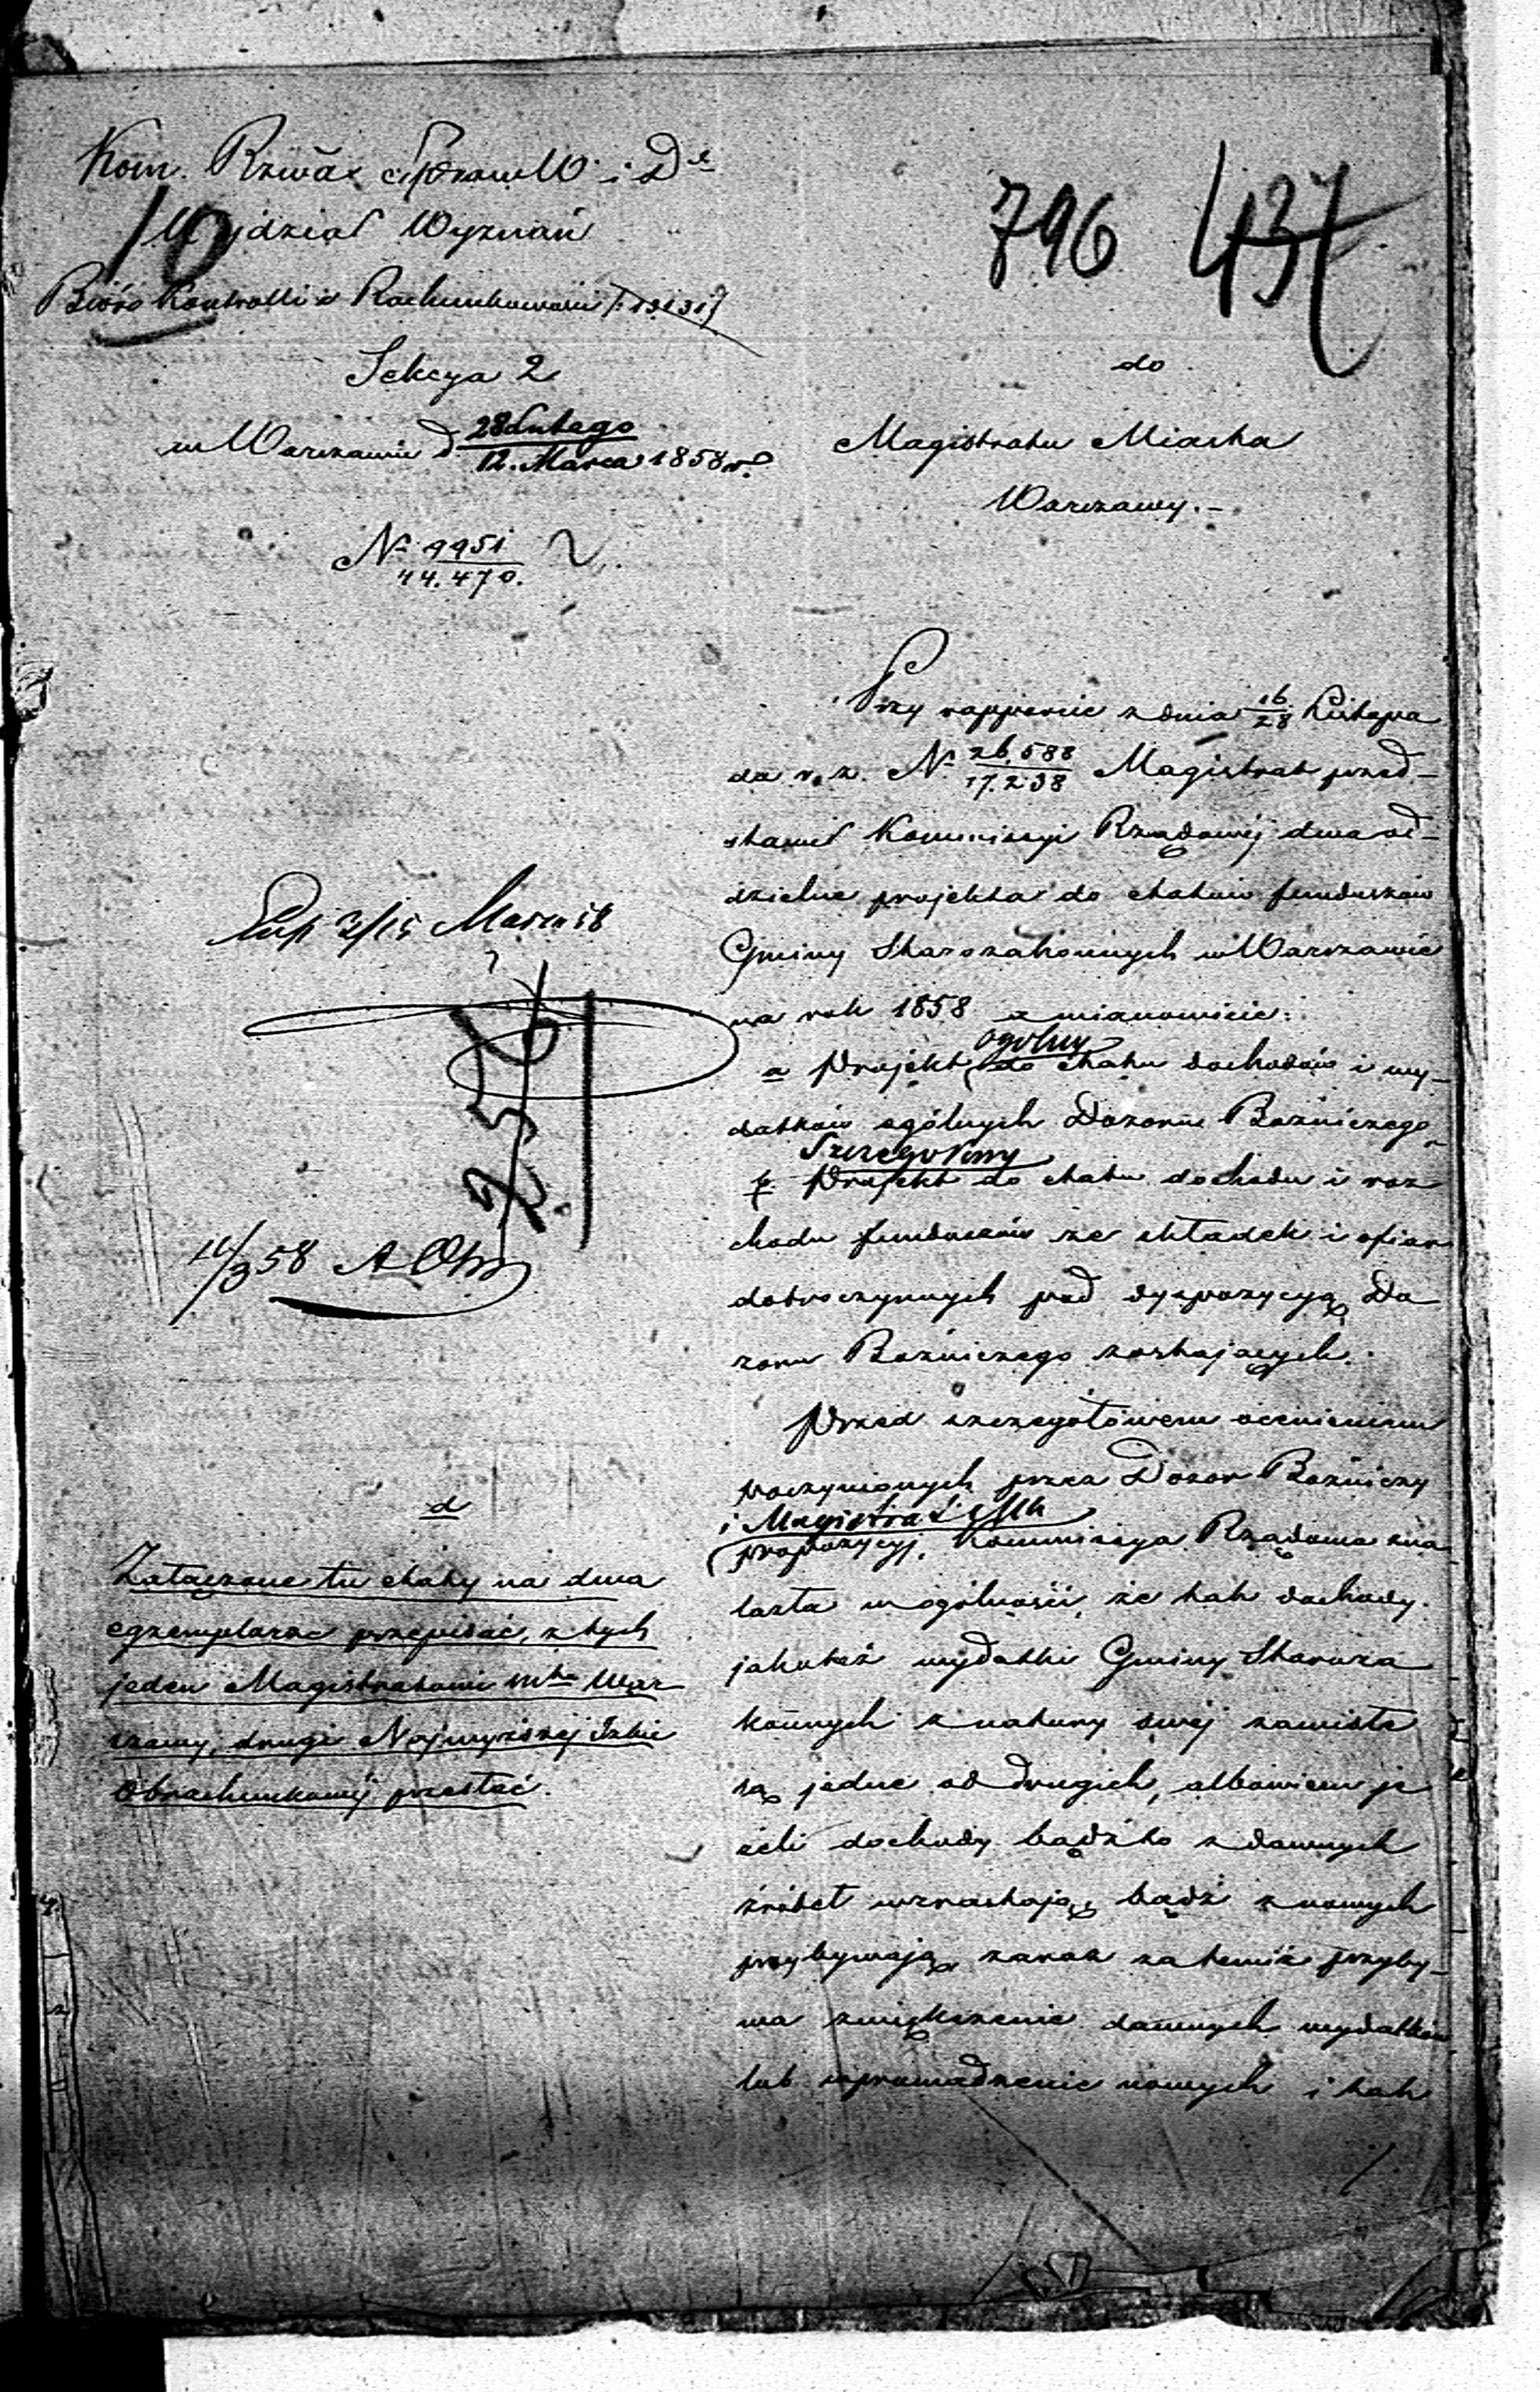 Kom. Rzwa Spraw W. i D.
Wydział Wyznań
10
Biuro Kontrolli i Rachunkowości
Sekcya 2
w Warszawie d 28 Lutego
12. Marca 1858 r.
N 9951
44.470.
796 437
do
Magistratu Miasta
Warszawy. -
Przy rapporcie z dnia 16/28 Listopa
da r. z. N. 26.588/17.238 Magistrat przed-
stawił Kommissyi Rządowéj dwa od-
dzielne projekta do etatów funduszów
Gminy Starozakonnych w Warszawie
na rok 1858 a mianowicie:
ogólny
a Projekt do etatu dochodów i wy-
datków ogólnych Dozoru Bożniczego,
Szczegółowy
Projekt do etatu dochodu i roz
chodu funduszów ze składek i ofiar
dobroczynnych pod dyspozycyą Do
zoru Bożniczego zostających.
Przed szczegółowem ocenieniem
poczynionych przez Dozór Bożniczy
i Magistrat
propozycyj, Kommissya Rządowa zna
lazła w ogólności, że tak dochody
jakoteż wydatki Gminy Staroza
konnych z natury swéj zawisłe
są jedne od drugich, albowiem je
żeli dochody bądź to z dawnych
źródeł wzrastają, bądź z nowych
przybywają, zaraz zatemże przyby-
wa zwiększenie dawnych wydatków
lub wprowadzenie nowych i tak
3/15 Marca 58
14/3 58
d
Załączone tu etaty na dwa
egzemplarze przepisać, z tych
jeden Magistratowi mta War
szawy, drugi Najwyższéj Izbie
Obrachunkowéj przesłać.